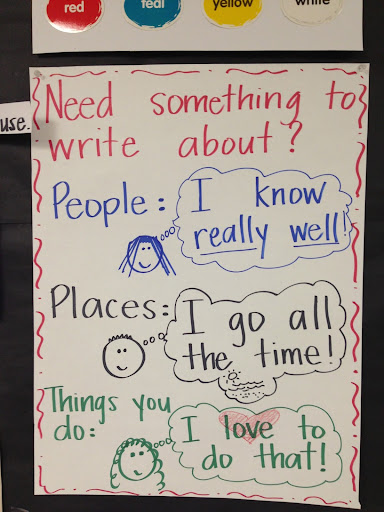 red teal yellow white
use.
Need something to
write about?
People: I know
really well!
Places: I go all
the time!
Things you
do: I love to
do that!